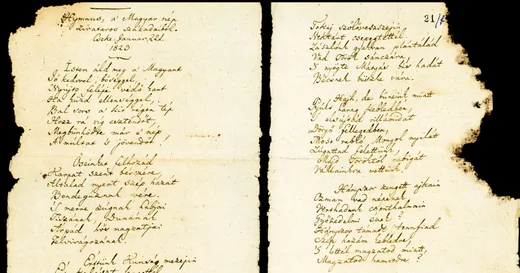 Hymnus, a' Magyar nép
zivataros századaiból.
Cseke, Januar. 22d.
1823
Isten áldd meg a' Magyart
Jó kedvvel, bőséggel,
Nyújts feléje védő kart
Ha küzd ellenséggel;
Bal sors a' kit régen tép
Hozz rá víg esztendőt,
Megbünhödte már e' nép
A' multat 's jövendőt!
Őseinket felhozád
Kárpát szent bérczére,
Általad nyert szép hazát
Bendegúznak vére.
'S merre zúgnak habjai
Tiszának, Dunának
Árpád hős magzatjai
Felvirágozának.
Értünk Kunság mezején
Ért kalászt lengettél
21/
Tokaj szőlővesszejin
Nektárt csepegtettél.
Zászlónk gyakran plántálád
Vad Török sánczára,
'S nyögte Mátyás bús hadát
Bécsnek büszke vára.
Hajh, de bűneink miatt
Gyúlt harag kebledben,
'S elsújtád villámidat
Dörgő fellegedben,
Most rabló Mongol nyilát
Zúgattad felettünk,
Majd Töröktől rabigát
Vállainkra vettünk.
Hányszor zengett ajkain
Ozman vad népének
Vert hadunk csonthalmain
Győzedelmi ének!
Hányszor támadt tenfiad
Szép hazám kebledre,
'S lettél magzatod miatt
Magzatod hamvvedre?